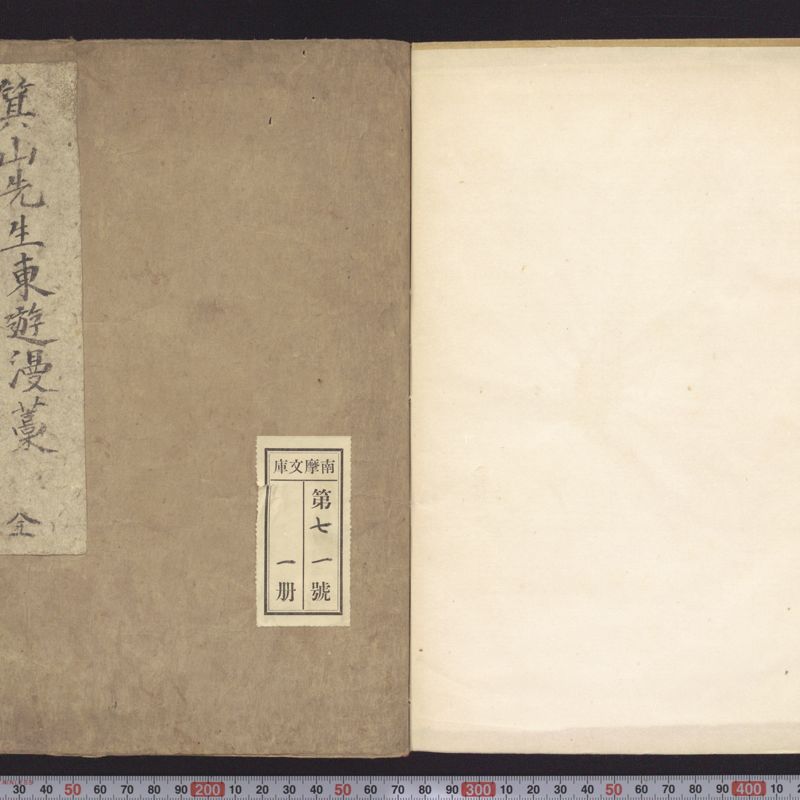 箕山先生東遊漫藁 全
南摩文庫
第七一號
一册
30 40 50 60 70 80 90 200 10 20 30 40 50 60 70 80 90 300 10 20 30 40 50 60 70 80 90 400 10